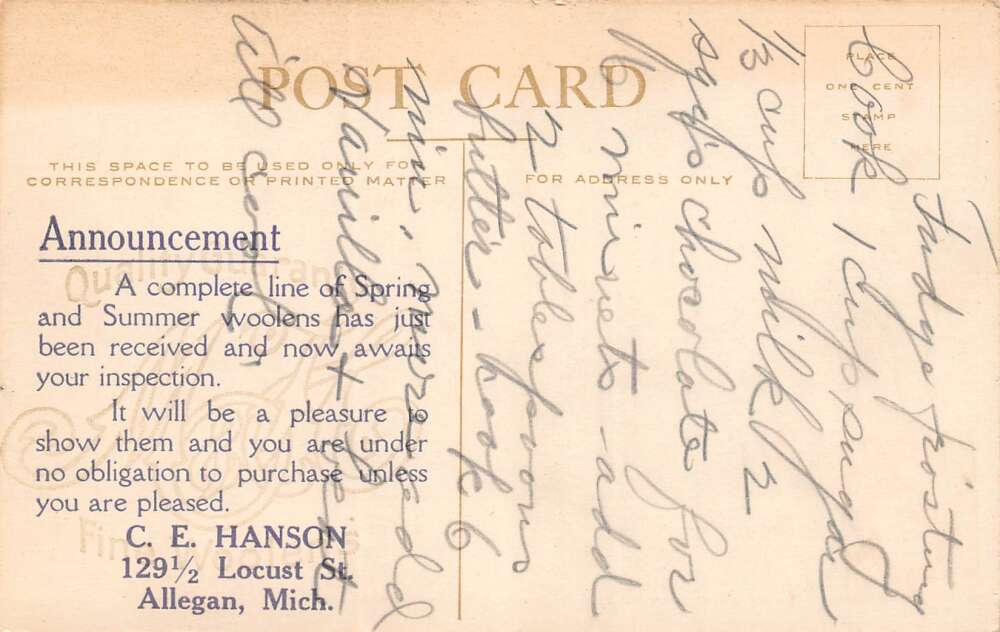 POST CARD
THIS SPACE TO BE USED ONLY FOR
CORRESPONDENCE OR PRINTED MATTER
FOR ADDRESS ONLY
PLACE
ONE CENT
STAMP
HERE
Announcement
A complete line of Spring
and Summer woolens has just
been received and now awaits
your inspection.
It will be a pleasure to
show them and you are under
no obligation to purchase unless
you are pleased.
C. E. HANSON
129½ Locust St.
Allegan, Mich.
Fudge frosting
Cook 1 Cup sugar
1/3 cup milk 2
sq's chocolate for
6 minets - add
2 tablespoons
butter - cook 6
min. more add
Vanilla + beat
till cool,
Quality Guaran
Fin